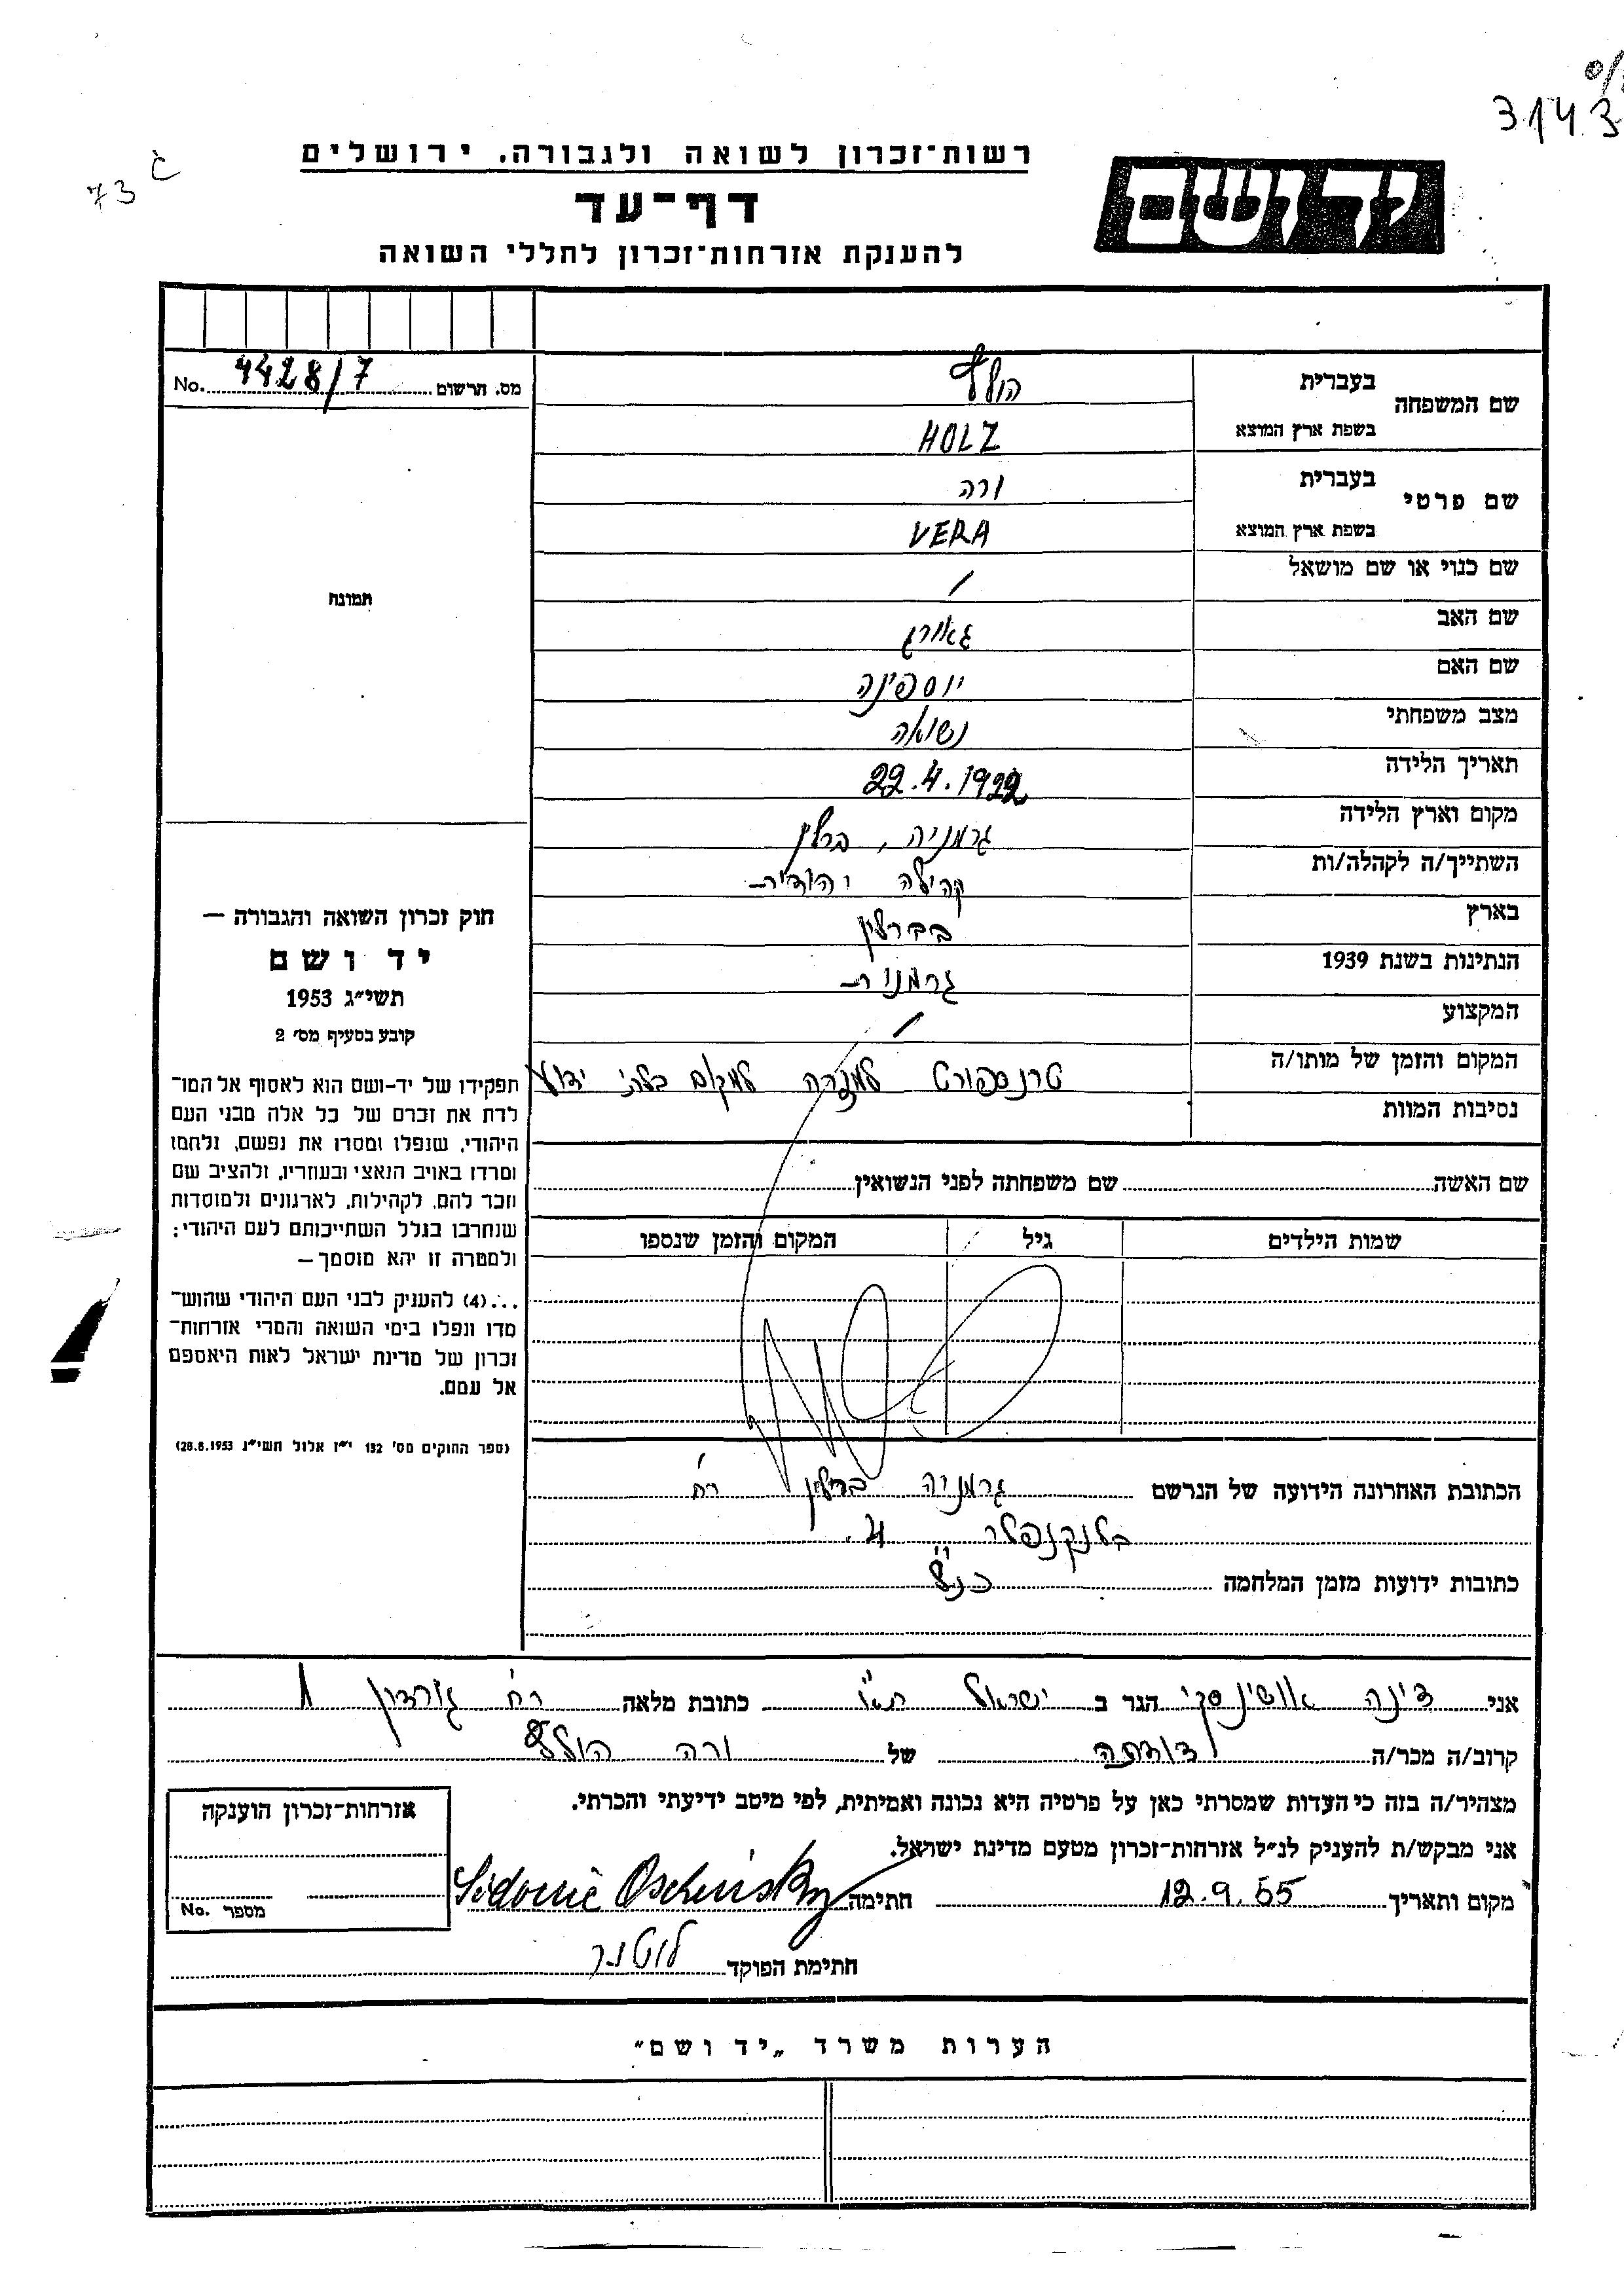 3143
73
רשות־זכרון לשואה ולגבורה, ירושלים
דף־עד
להענקת אזרחות־זכרון לחללי השואה
יד ושם
מס. תרשום 4428/7 No.
שם המשפחה
בעברית הולץ
בשפת ארץ המוצא HOLZ
שם פרטי
בעברית ורה
בשפת ארץ המוצא VERA
שם כנוי או שם מושאל /
שם האב גאורג
שם האם יוספינה
מצב משפחתי נשואה
תאריך הלידה 22.4.1922
מקום וארץ הלידה גרמניה, ברלין
השתייך/ה לקהלה/ות קהילה יהודית
בארץ בברלין
הנתינות בשנת 1939 גרמנית
המקצוע /
המקום והזמן של מותו/ה טרנספורט למזרח למקום בלתי ידוע
נסיבות המוות
שם האשה שם משפחתה לפני הנשואין
שמות הילדים גיל המקום והזמן שנספו
הכתובת האחרונה הידועה של הנרשם גרמניה ברלין רח'
4.
כתובות ידועות מזמן המלחמה כנ"ל
תמונה
חוק זכרון השואה והגבורה —
יד ושם
תשי"ג 1953
קובע בסעיף מס' 2
תפקידו של יד-ושם הוא לאסוף אל המו־
לדת את זכרם של כל אלה מבני העם
היהודי, שנפלו ומסרו את נפשם, נלחמו
ומרדו באויב הנאצי ובעוזריו, ולהציב שם
וזכר להם, לקהילות, לארגונים ולמוסדות
שנחרבו בגלל השתייכותם לעם היהודי;
ולמטרה זו יהא מוסמך—
...(4) להעניק לבני העם היהודי שהוש־
מדו ונפלו בימי השואה והמרי אזרחות־
זכרון של מדינת ישראל לאות היאספם
אל עמם.
(ספר החוקים מס' 132 י"ז אלול תשי"ג 28.8.1953)
אני דינה אושינסקי הגר ב ישראל ת"א כתובת מלאה רח' גורדון 1
קרוב/ה מכר/ה דודתה של ורה הולץ
מצהיר/ה בזה כי העדות שמסרתי כאן על פרטיה היא נכונה ואמיתית, לפי מיטב ידיעתי והכרתי.
אני מבקש/ת להעניק לנ"ל אזרחות־זכרון מטעם מדינת ישראל.
מקום ותאריך 12.9.55 חתימה Sidonie Oschinsky
חתימת הפוקד
אזרחות־זכרון הוענקה
מספר No.
הערות משרד „יד ושם"